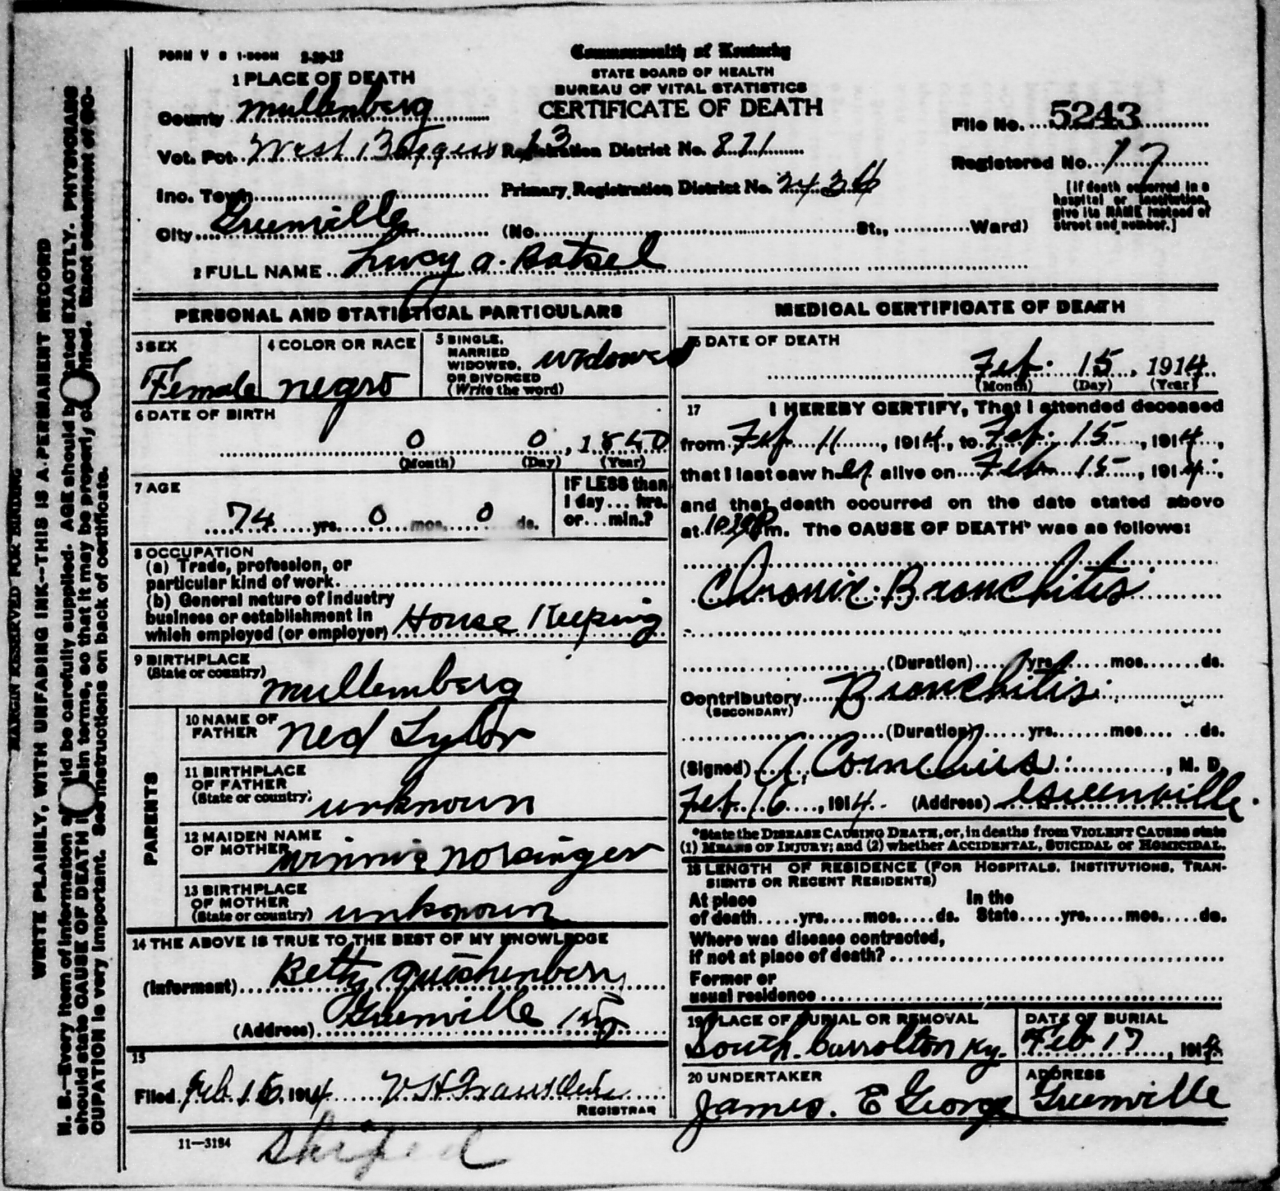 FORM V S 1-500M 3-20-12
Commonwealth of Kentucky
STATE BOARD OF HEALTH
BUREAU OF VITAL STATISTICS
CERTIFICATE OF DEATH
1 PLACE OF DEATH
County Mullenberg
Vot. Pct. West Boggess 13 Registration District No. 871
Inc. Town
Primary Registration District No. 2436
City Greenville (No. St., Ward)
File No. 5243
Registered No. 17
[If death occurred in a hospital or institution, give its NAME instead of street and number.]
2 FULL NAME Lucy a. Batsel
PERSONAL AND STATISTICAL PARTICULARS
3 SEX
Female
4 COLOR OR RACE
negro
5 SINGLE, MARRIED WIDOWED, OR DIVORCED (Write the word)
widowed
6 DATE OF BIRTH
0 0, 1840
(Month) (Day) (Year)
7 AGE
74 yrs. 0 mos. 0 ds.
IF LESS than 1 day... hrs. or... min.?
8 OCCUPATION
(a) Trade, profession, or
particular kind of work
(b) General nature of industry
business or establishment in
which employed (or employer) House Keeping
9 BIRTHPLACE
(State or country)
mullemberg
PARENTS
10 NAME OF FATHER
Ned Tylor
11 BIRTHPLACE OF FATHER
(State or country)
unknown
12 MAIDEN NAME OF MOTHER
winnie
13 BIRTHPLACE OF MOTHER
(State or country)
unknown
14 THE ABOVE IS TRUE TO THE BEST OF MY KNOWLEDGE
(Informant) Betty
(Address) Greenville Ky
15
Filed Feb. 16, 1914
REGISTRAR
11-3184
shiped
MEDICAL CERTIFICATE OF DEATH
DATE OF DEATH
Feb. 15, 1914
(Month) (Day) (Year)
17 I HEREBY CERTIFY, That I attended deceased
from Feb 11, 1914, to Feb. 15, 1914,
that I last saw her alive on Feb 15, 1914,
and that death occurred on the date stated above
at m. The CAUSE OF DEATH* was as follows:
Chronic Bronchitis
(Duration) yrs. mos. ds.
Contributory Bronchitis
(SECONDARY)
(Duration) yrs. mos. ds.
(Signed) A Cornelius, M. D.
Feb. 16, 1914. (Address) Greenville
*State the DISEASE CAUSING DEATH, or, in deaths from VIOLENT CAUSES state
(1) MEANS OF INJURY; and (2) whether ACCIDENTAL, SUICIDAL OR HOMICIDAL.
18 LENGTH OF RESIDENCE (FOR HOSPITALS, INSTITUTIONS, TRAN-
SIENTS OR RECENT RESIDENTS)
At place of death yrs. mos. ds. In the State yrs. mos. ds.
Where was disease contracted,
if not at place of death?
Former or
usual residence
19 PLACE OF BURIAL OR REMOVAL
South Carrolton Ky.
DATE OF BURIAL
Feb 17, 1914
20 UNDERTAKER
James. E George
ADDRESS
Greenville
MARGIN RESERVED FOR BINDING
WRITE PLAINLY, WITH UNFADING INK--THIS IS A PERMANENT RECORD
N. B.—Every item of information should be carefully supplied. AGE should be stated EXACTLY. PHYSICIANS
should state CAUSE OF DEATH in plain terms, so that it may be properly classified. Exact statement of OC-
CUPATION is very important. See instructions on back of certificate.